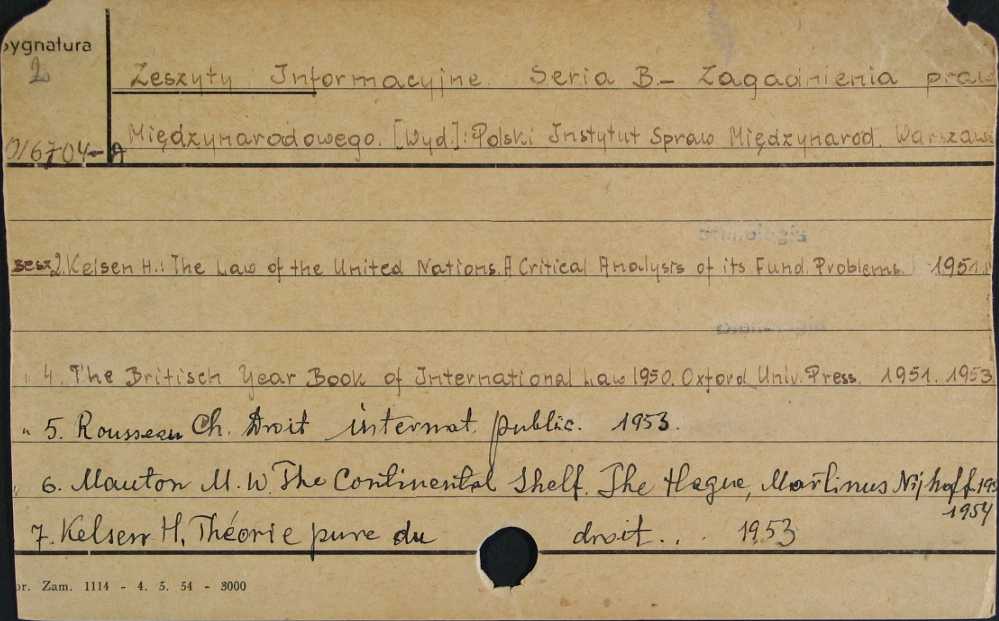 Sygnatura
2
Zeszyty Informacyjne. Seria B.- Zagadnienia praw
016704- A
Międzynarodowego. [Wyd.]: Polski Instytut Spraw Międzynarod. Warszaw
zesz. 2. Kelsen H.: The Law of the United Nations. A Critical Analysis of its Fund. Problems. 1951.
" 4. The Britisch Year Book of International Law 1950. Oxford Univ. Press. 1951. 1953
" 5. Rousseau Ch. Droit internat. public. 1953.
" 6. Mouton M. W. The Continental Shelf. The Hague, Martinus Nijhoff 195
1954
7. Kelsen H. Théorie pure du droit... 1953
or. Zam. 1114 - 4. 5. 54 - 3000